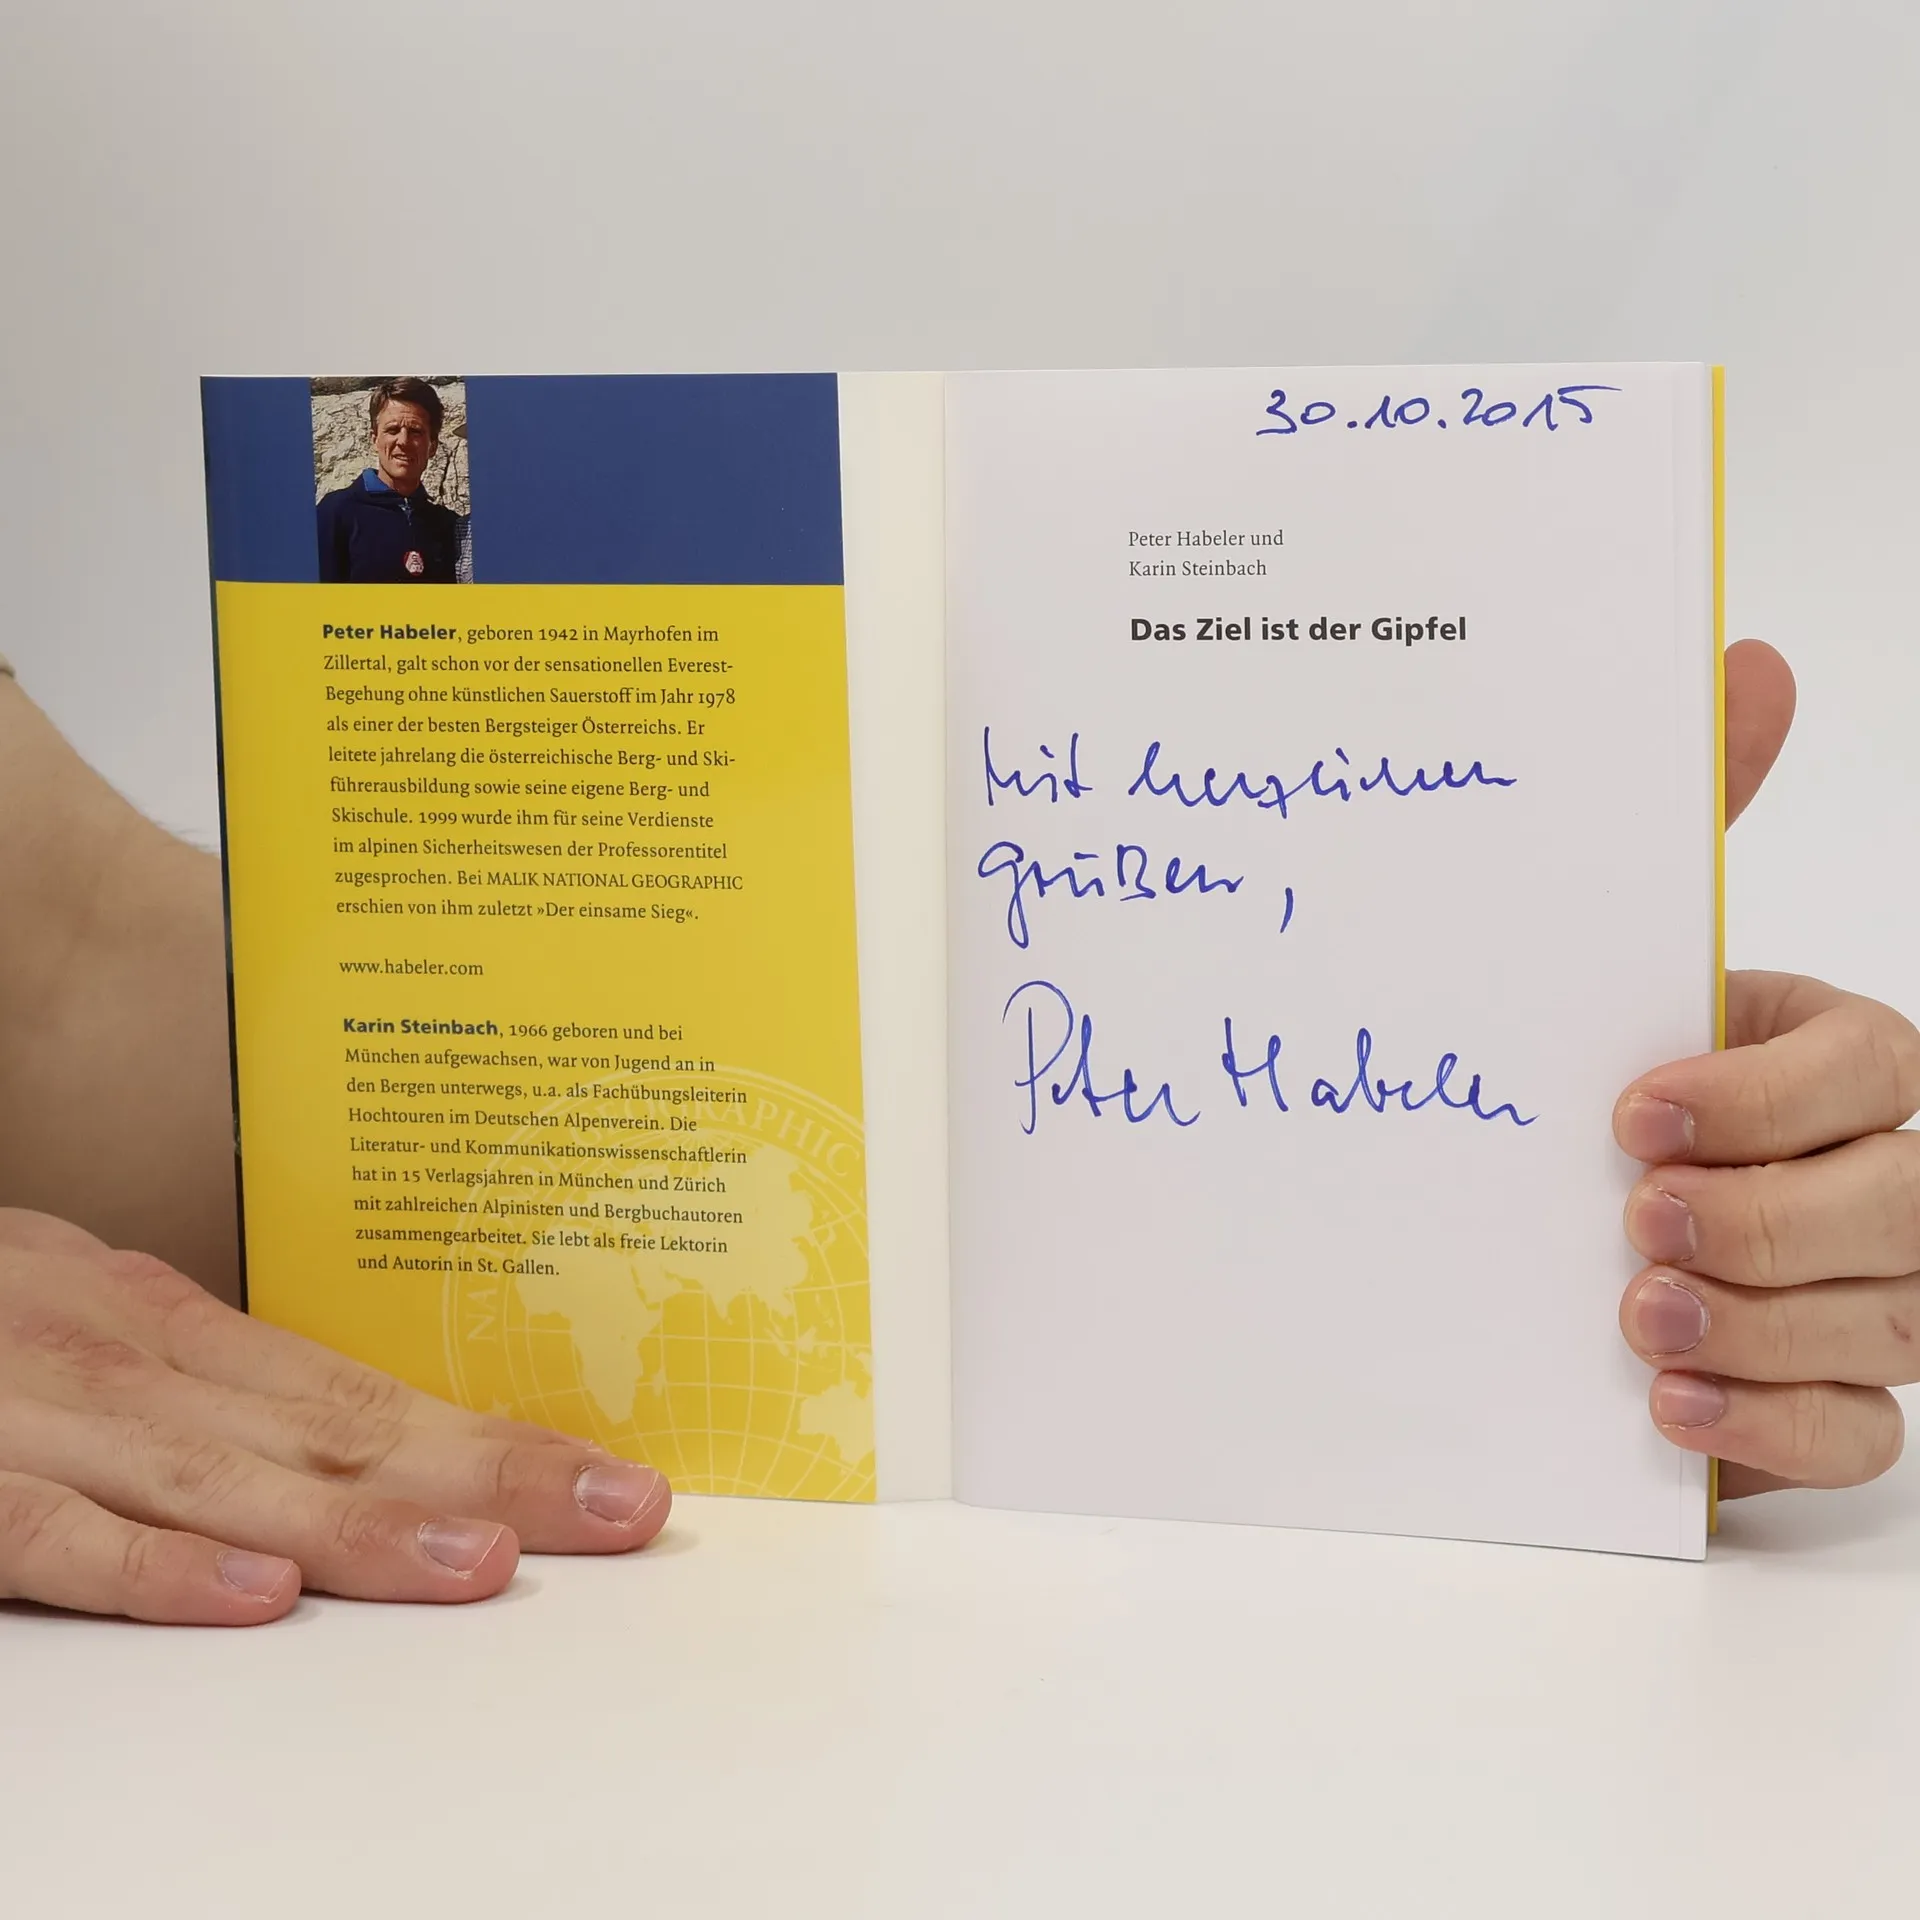 Peter Habeler, geboren 1942 in Mayrhofen im
Zillertal, galt schon vor der sensationellen Everest-
Begehung ohne künstlichen Sauerstoff im Jahr 1978
als einer der besten Bergsteiger Österreichs. Er
leitete jahrelang die österreichische Berg- und Ski-
führerausbildung sowie seine eigene Berg- und
Skischule. 1999 wurde ihm für seine Verdienste
im alpinen Sicherheitswesen der Professorentitel
zugesprochen. Bei MALIK NATIONAL GEOGRAPHIC
erschien von ihm zuletzt »Der einsame Sieg«.
www.habeler.com
Karin Steinbach, 1966 geboren und bei
München aufgewachsen, war von Jugend an in
den Bergen unterwegs, u.a. als Fachübungsleiterin
Hochtouren im Deutschen Alpenverein. Die
Literatur- und Kommunikationswissenschaftlerin
hat in 15 Verlagsjahren in München und Zürich
mit zahlreichen Alpinisten und Bergbuchautoren
zusammengearbeitet. Sie lebt als freie Lektorin
und Autorin in St. Gallen.
NATIONAL GEOGRAPHIC
30.10.2015
Peter Habeler und
Karin Steinbach
Das Ziel ist der Gipfel
Mit herzlichen
Grüßen,
Peter Habeler